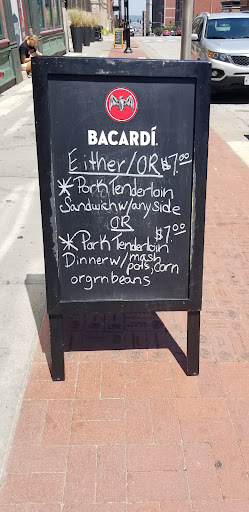 BACARDÍ
Either/OR $7.00
* Pork Tenderloin
Sandwich w/any side
OR
$7.00
* Pork Tenderloin
Dinner w/ mash
pots, corn
or grn beans